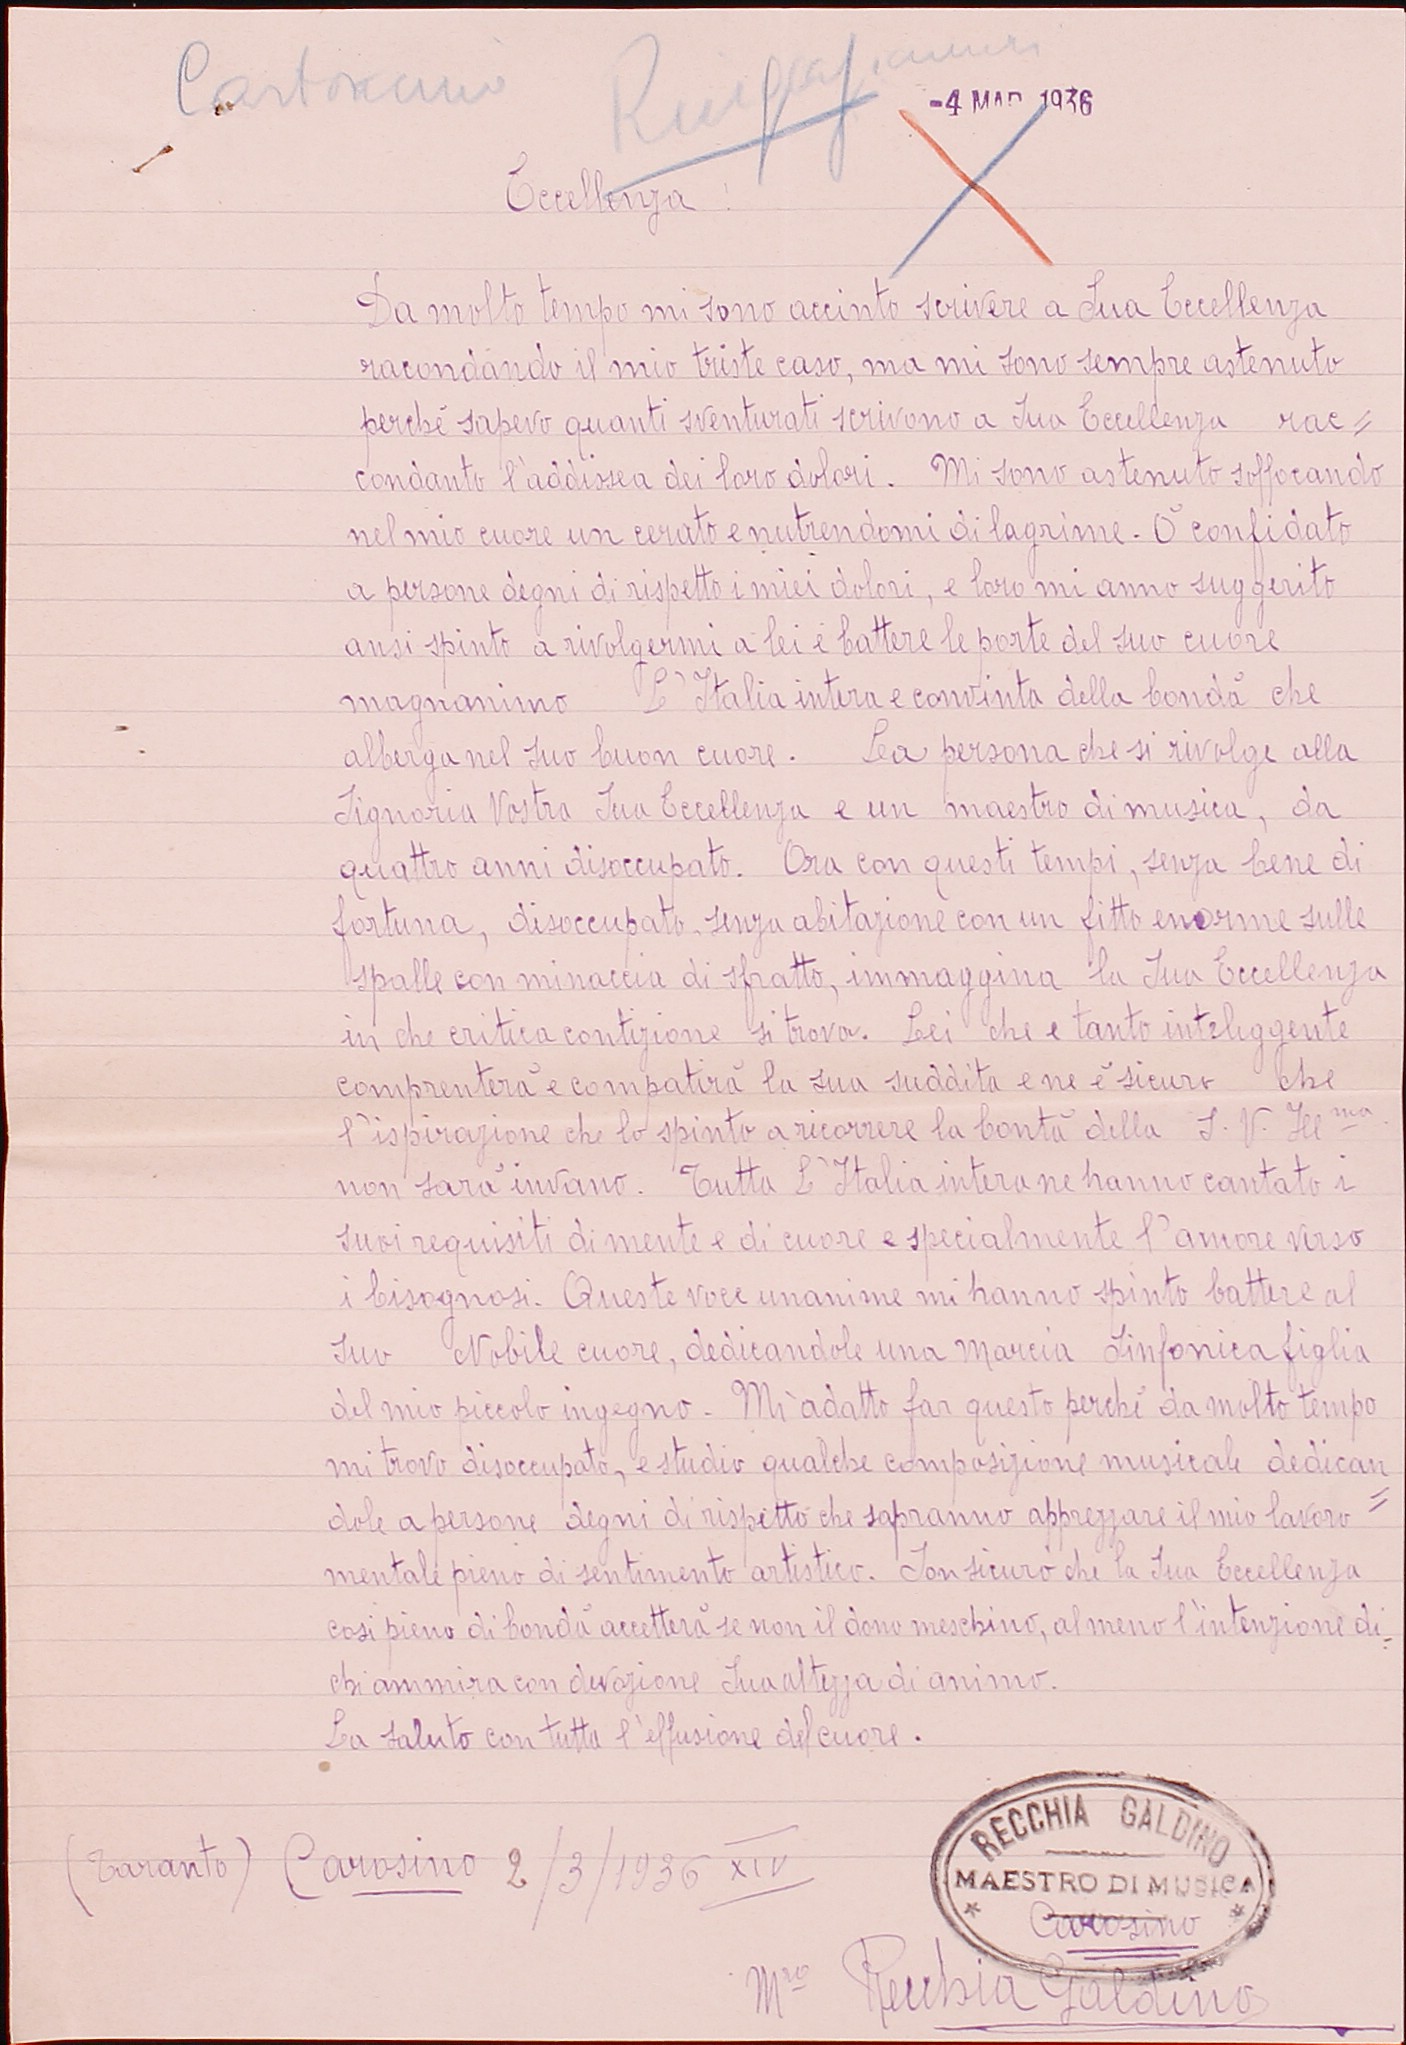 -4 MAR 1936
Eccellenza:
Da molto tempo mi sono accinto scrivere a Sua Eccellenza
racondando il mio triste caso, ma mi sono sempre astenuto
perché sapevo quanti sventurati scrivono a Sua Eccellenza rac=
condanto l'addissea dei loro dolori. Mi sono astenuto soffocando
nel mio cuore un cerato e nutrendomi di lagrime. Ò confidato
a persone degni di rispetto i miei dolori, e loro mi anno suggerito
ansi spinto a rivolgermi a lei e battere le porte del suo cuore
magnanimo L'Italia intera e convinta della bondà che
alberga nel suo buon cuore. La persona che si rivolge alla
Signoria Vostra Sua Eccellenza e un maestro di musica, da
quattro anni disoccupato. Ora con questi tempi, senza bene di
fortuna, disoccupato, senza abitazione con un fitto enorme sulle
spalle con minaccia di sfratto, immaggina la Sua Eccellenza
in che critica contizione si trova. Lei che e tanto inteliggente
comprenterà e compatirà la sua suddita e ne è sicuro che
l'ispirazione che lo spinto a ricorrere la bontà della S. V. Ill ma
non sarà invano. Tutta L'Italia intera ne hanno cantato i
suoi requisiti di mente e di cuore e specialmente l'amore verso
i bisognosi. Queste voce unanime mi hanno spinto battere al
suo Nobile cuore, dedicandole una Marcia Sinfonica figlia
del mio piccolo ingegno. Mi adatto far questo perché da molto tempo
mi trovo disoccupato, e studio qualche composizione musicale dedican
dole a persone degni di rispetto che sapranno apprezzare il mio lavoro =
mentale pieno di sentimento artistico. Son sicuro che la Sua Eccellenza
cosi pieno di bondà accetterà se non il dono meschino, almeno l'intenzione di
chi ammira con devozione Sua altezza di animo.
La saluto con tutta l'effusione del cuore.
(Taranto) Carosino 2/3/1936 XIV
RECCHIA GALDINO
MAESTRO DI MUSICA
Carosino
Mro Recchia Galdino